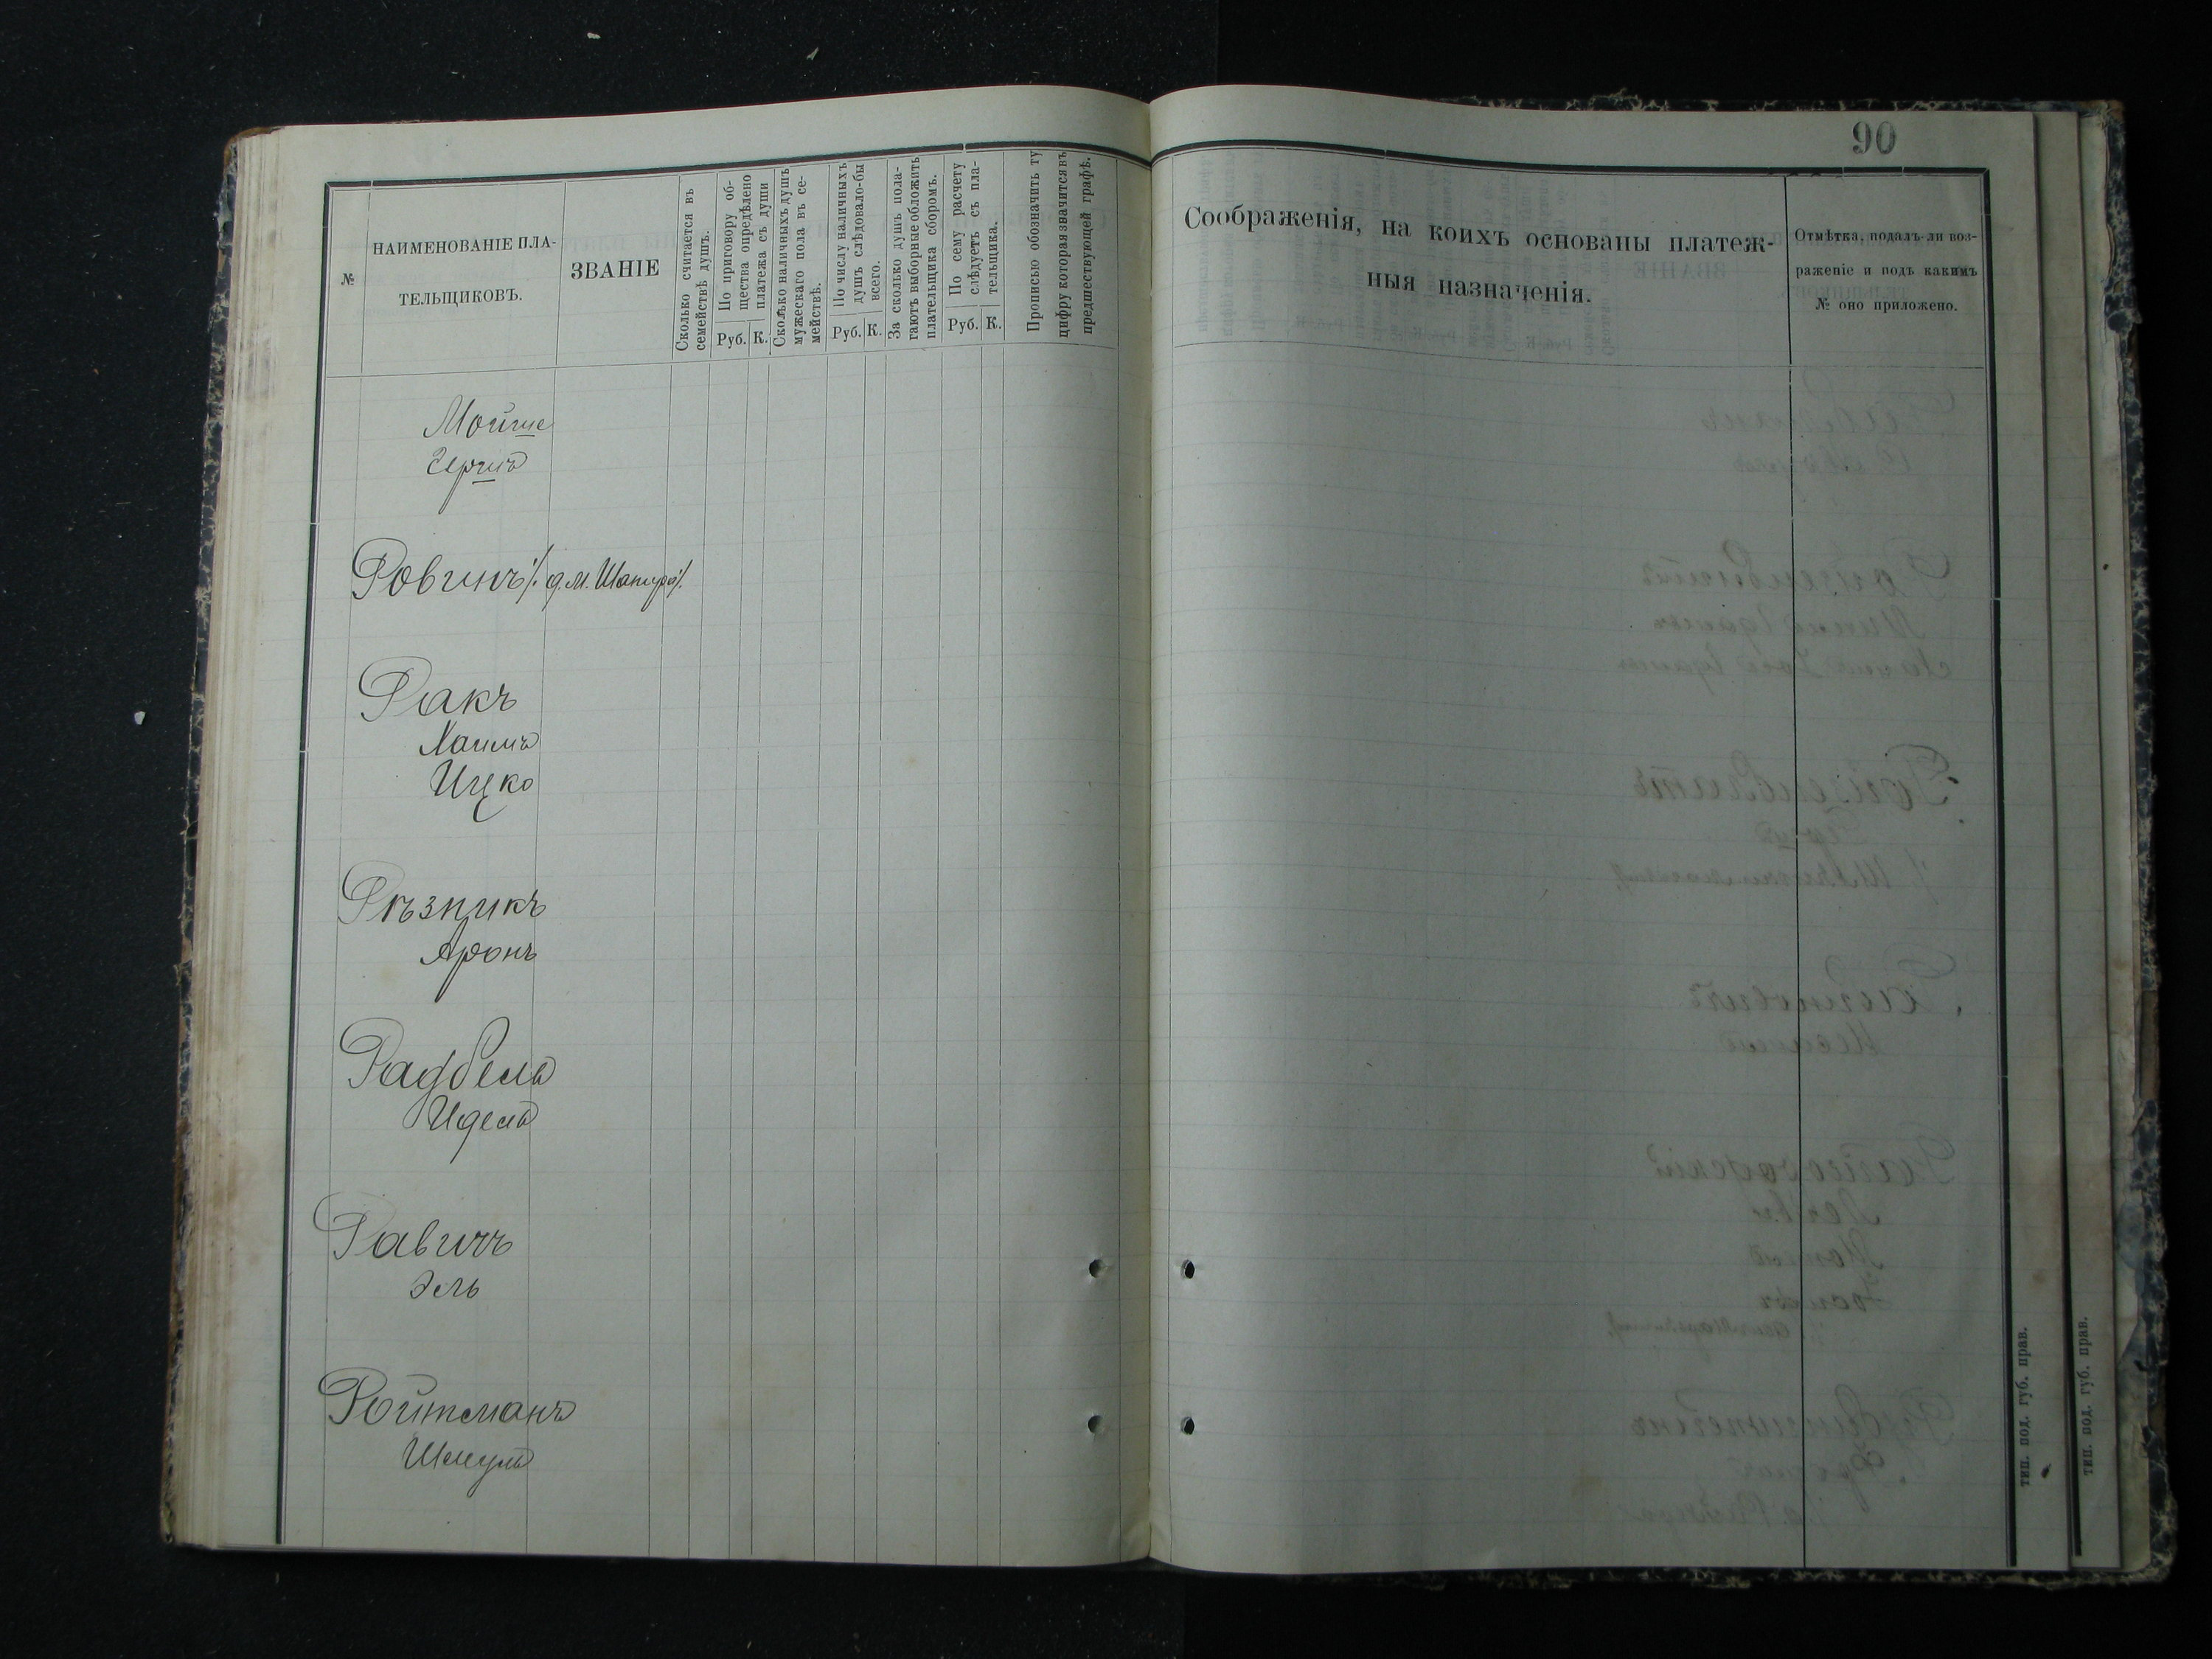 90
№
НАИМЕНОВАНІЕ ПЛА-
ТЕЛЬЩИКОВЪ.
ЗВАНІЕ
Сколько считается въ
семействѣ душъ.
По приговору об-
щества опредѣлено
платежа съ души
Руб. К.
Сколько наличныхъ душъ
мужескаго пола въ се-
мействѣ.
По числу наличныхъ
душъ слѣдовало-бы
всего.
Руб. К.
За сколько душъ пола-
гаютъ выборные обложить
плательщика сборомъ.
По сему расчету
слѣдуетъ съ пла-
тельщика.
Руб. К.
Прописью обозначить ту
цифру которая значится въ
предшествующей графѣ.
Соображенія, на коихъ основаны платеж-
ныя назначенія.
Отмѣтка, подалъ-ли воз-
раженіе и подъ какимъ
№ оно приложено.
Мойше
Гершъ
Ровинъ /. д. м. /.
Ракъ
Хаимъ
Ицко
Рѣзникъ
Аронъ
Радбель
Идель
Равичъ
Эль
Ройтманъ
Шмуль
тип. под. губ. прав.
тип. под. губ. прав.